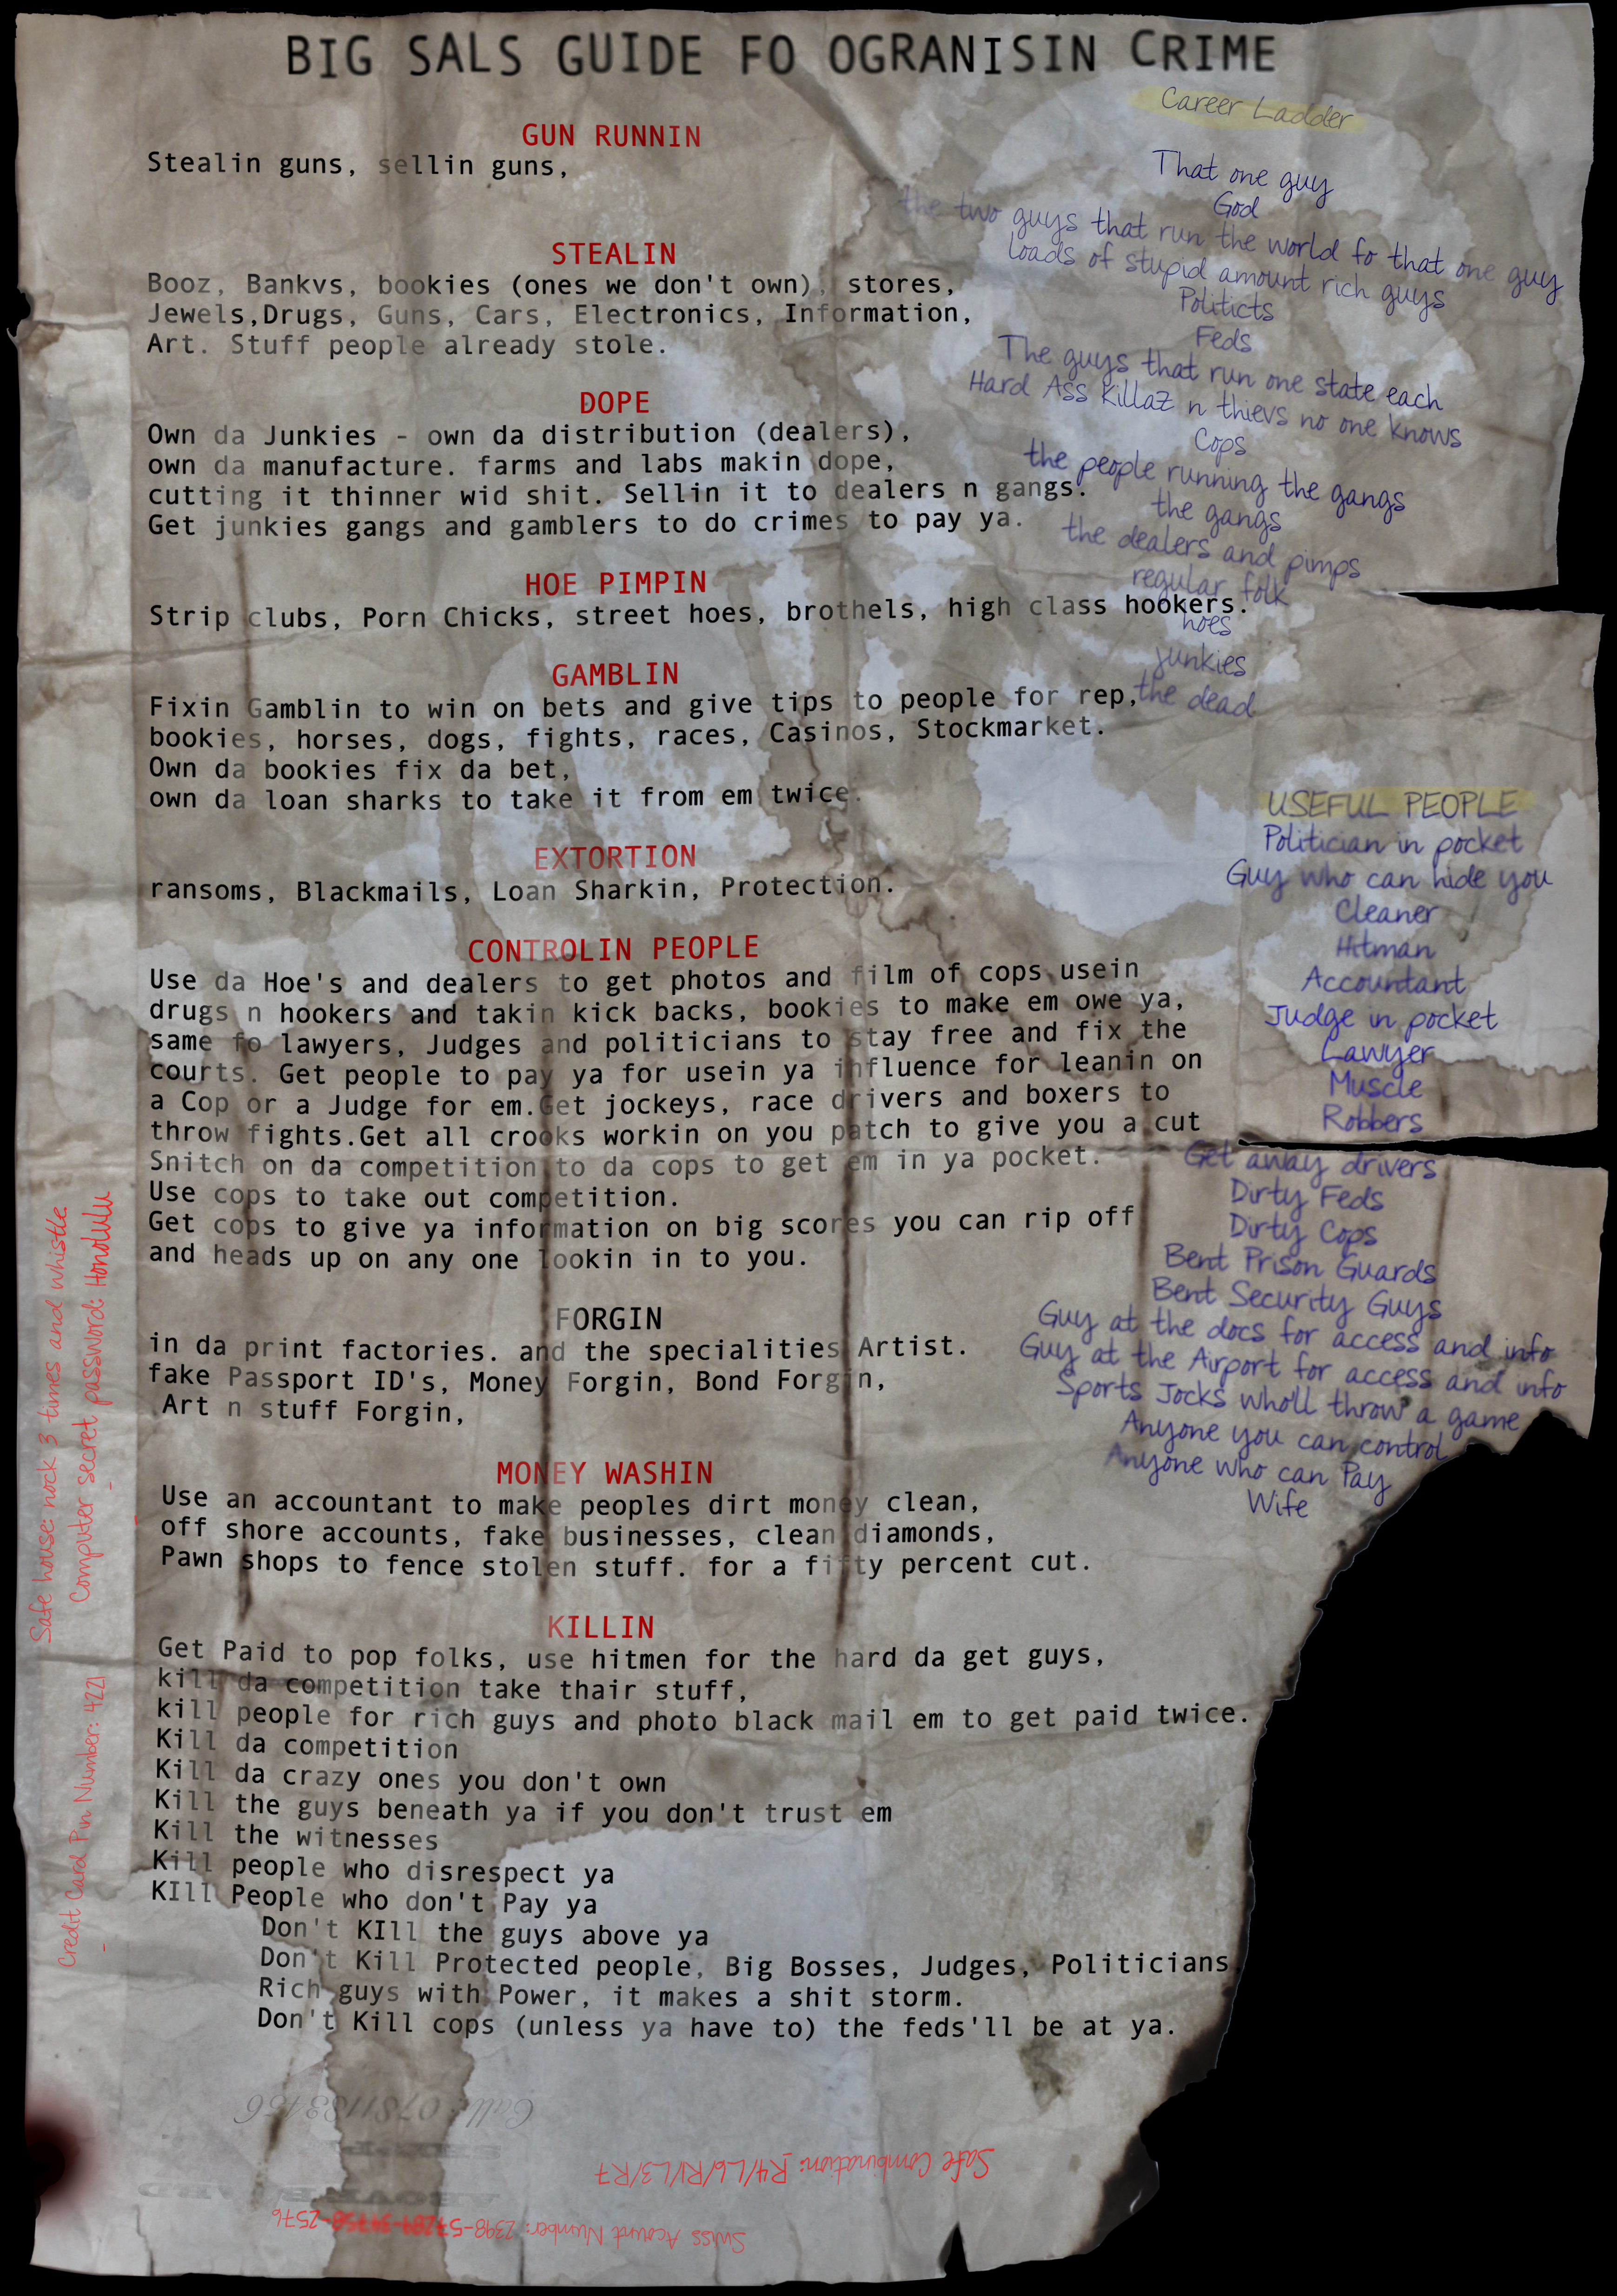 BIG SALS GUIDE FO OGRANISIN CRIME
GUN RUNNIN
Stealin guns, sellin guns,
STEALIN
Booz, Bankvs, bookies (ones we don't own), stores,
Jewels,Drugs, Guns, Cars, Electronics, Information,
Art. Stuff people already stole.
DOPE
Own da Junkies - own da distribution (dealers),
own da manufacture. farms and labs makin dope,
cutting it thinner wid shit. Sellin it to dealers n gangs.
Get junkies gangs and gamblers to do crimes to pay ya.
HOE PIMPIN
Strip clubs, Porn Chicks, street hoes, brothels, high class hookers.
GAMBLIN
Fixin Gamblin to win on bets and give tips to people for rep,
bookies, horses, dogs, fights, races, Casinos, Stockmarket.
Own da bookies fix da bet,
own da loan sharks to take it from em twice.
EXTORTION
ransoms, Blackmails, Loan Sharkin, Protection.
CONTROLIN PEOPLE
Use da Hoe's and dealers to get photos and film of cops usein
drugs n hookers and takin kick backs, bookies to make em owe ya,
same fo lawyers, Judges and politicians to stay free and fix the
courts. Get people to pay ya for usein ya influence for leanin on
a Cop or a Judge for em.Get jockeys, race drivers and boxers to
throw fights.Get all crooks workin on you patch to give you a cut
Snitch on da competition to da cops to get em in ya pocket.
Use cops to take out competition.
Get cops to give ya information on big scores you can rip off
and heads up on any one lookin in to you.
FORGIN
in da print factories. and the specialities Artist.
fake Passport ID's, Money Forgin, Bond Forgin,
Art n stuff Forgin,
MONEY WASHIN
Use an accountant to make peoples dirt money clean,
off shore accounts, fake businesses, clean diamonds,
Pawn shops to fence stolen stuff. for a fifty percent cut.
KILLIN
Get Paid to pop folks, use hitmen for the hard da get guys,
kill da competition take thair stuff,
kill people for rich guys and photo black mail em to get paid twice.
Kill da competition
Kill da crazy ones you don't own
Kill the guys beneath ya if you don't trust em
Kill the witnesses
Kill people who disrespect ya
KIll People who don't Pay ya
Don't KIll the guys above ya
Don't Kill Protected people, Big Bosses, Judges, Politicians,
Rich guys with Power, it makes a shit storm.
Don't Kill cops (unless ya have to) the feds'll be at ya.
Career Ladder
That one guy
God
the two guys that run the world fo that one guy
loads of stupid amount rich guys
Politicts
Feds
The guys that run one state each
Hard Ass Killaz n thievs no one knows
Cops
the people running the gangs
the gangs
the dealers and pimps
regular folk
hoes
junkies
the dead
USEFUL PEOPLE
Politician in pocket
Guy who can hide you
Cleaner
Hitman
Accountant
Judge in pocket
Lawyer
Muscle
Robbers
Get away drivers
Dirty Feds
Dirty Cops
Bent Prison Guards
Bent Security Guys
Guy at the docs for access and info
Guy at the Airport for access and info
Sports Jocks wholl throw a game
Anyone you can control
Anyone who can Pay
Wife
Safe house: nock 3 times and whistle
Computer secret password: Honolulu
Credit Card Pin Number: 4221
Call: 0781183456
Safe Combination: R4/L6/R1/L3/R7
Swiss Acount Number: 2398-57289-34750-2576